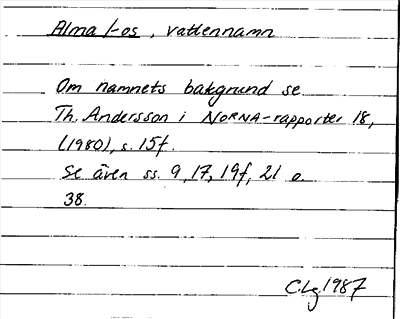 Alma /-os, vattennamn
Om namnets bakgrund se
Th. Andersson i NORNA-rapporter 18,
(1980), s. 15f.
Se även ss. 9, 17, 19f, 21 o.
38.
CLg 1987